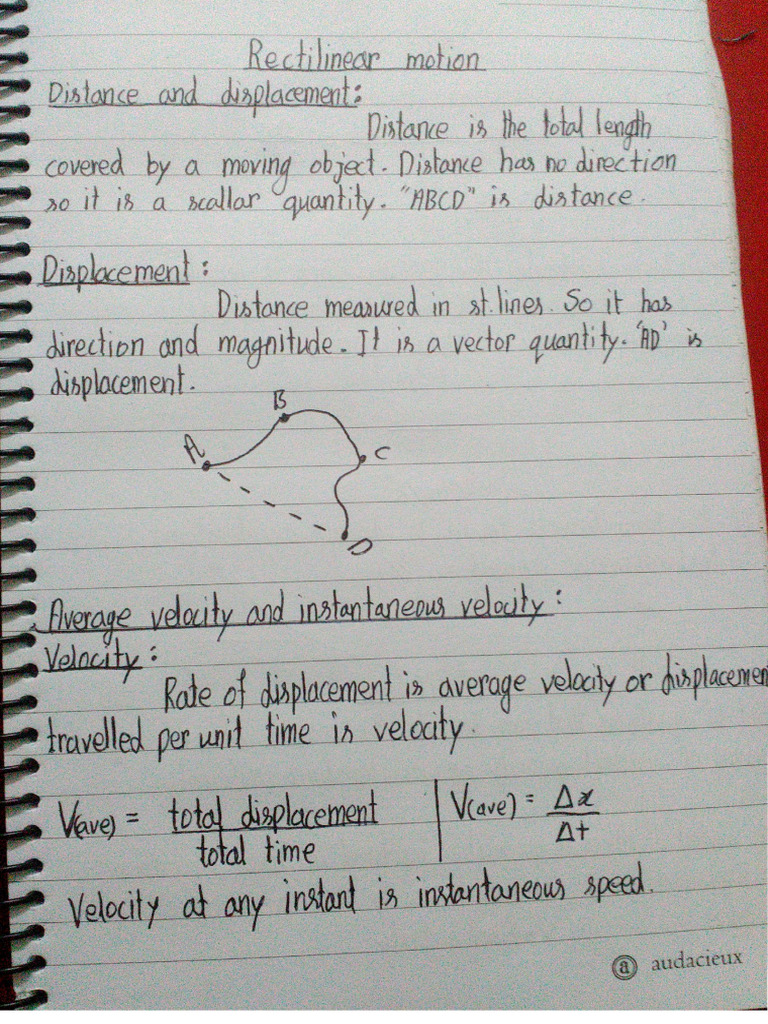 Rectilinear motion
Distance and displacement:
Distance is the total length
covered by a moving object. Distance has no direction
so it is a scallar quantity. "ABCD" is distance.
Displacement:
Distance measured in st. lines. So it has
direction and magnitude. It is a vector quantity. 'AD' is
displacement.
B
A
C
D
Average velocity and instantaneous velocity:
Velocity:
Rate of displacement is average velocity or displacemen
travelled per unit time is velocity.
V(ave) = total displacement / total time | V(ave) = Δx / Δt
Velocity at any instant is instantaneous speed.
a audacieux